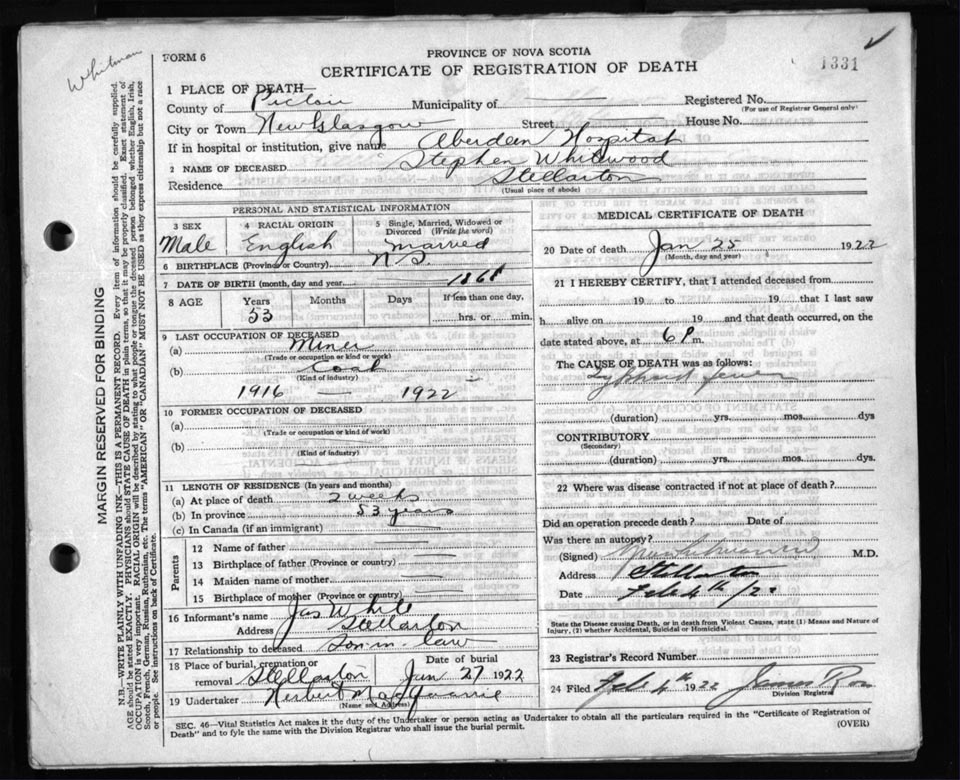 Whitman
FORM 6
PROVINCE OF NOVA SCOTIA
CERTIFICATE OF REGISTRATION OF DEATH
1331
1 PLACE OF DEATH—
County of Pictou Municipality of Registered No.
(For use of Registrar General only)
City or Town New Glasgow Street House No.
If in hospital or institution, give name Aberdeen Hospital
2 NAME OF DECEASED Stephen Whitwood
Residence Stellarton
(Usual place of abode)
PERSONAL AND STATISTICAL INFORMATION
3 SEX 4 RACIAL ORIGIN 5 Single, Married, Widowed or Divorced (Write the word)
Male English Married
6 BIRTHPLACE (Province or Country) N S.
7 DATE OF BIRTH (month, day and year) 1868
8 AGE Years Months Days If less than one day,
53 hrs. or min.
9 LAST OCCUPATION OF DECEASED
(a) Miner
(Trade or occupation or kind or work)
(b) Coal
(Kind of industry)
1916 — 1922
10 FORMER OCCUPATION OF DECEASED
(a)
(Trade or occupation or kind of work)
(b)
(Kind of industry)
11 LENGTH OF RESIDENCE (In years and months)
(a) At place of death 2 weeks
(b) In province 53 years
(c) In Canada (if an immigrant)
Parents
12 Name of father
13 Birthplace of father (Province or country)
14 Maiden name of mother
15 Birthplace of mother (Province or country)
16 Informant's name Jas White
Address Stellarton
17 Relationship to deceased Son in law
18 Place of burial, cremation or removal Stellarton Date of burial Jan 27 1922
19 Undertaker Herbert MacQuarrie
(Name and Address)
MEDICAL CERTIFICATE OF DEATH
20 Date of death Jan 25 1922
(Month, day and year)
21 I HEREBY CERTIFY, that I attended deceased from
19 to 19 that I last saw
h alive on 19 and that death occurred, on the
date stated above, at 6 P m.
The CAUSE OF DEATH was as follows:
Typhoid fever
(duration) yrs. mos. dys
CONTRIBUTORY
(Secondary)
(duration) yrs. mos. dys.
22 Where was disease contracted if not at place of death?
Did an operation precede death? Date of
Was there an autopsy?
(Signed) M.D.
Address Stellarton
Date Feb 4th /22
State the Disease causing Death, or in death from Violent Causes, state (1) Means and Nature of Injury, (2) whether Accidental, Suicidal or Homicidal.
23 Registrar's Record Number
24 Filed Feb 4th 1922 James Ross
Division Registrar
SEC. 46—Vital Statistics Act makes it the duty of the Undertaker or person acting as Undertaker to obtain all the particulars required in the "Certificate of Registration of
Death" and to fyle the same with the Division Registrar who shall issue the burial permit.
(OVER)
MARGIN RESERVED FOR BINDING
N.B.—WRITE PLAINLY WITH UNFADING INK—THIS IS A PERMANENT RECORD. Every item of information should be carefully supplied.
AGE should be stated EXACTLY. PHYSICIANS should STATE CAUSE OF DEATH in plain terms, so that it may be properly classified. Exact statement of
OCCUPATION is very important. RACIAL ORIGIN will be described by stating to what people or tongue the deceased person belonged whether English, Irish,
Scotch, French, German, Russian, Ruthenian, etc. The terms "AMERICAN" OR "CANADIAN" MUST NOT BE USED as they express citizenship but not a race
or people. See instructions on back of Certificate.